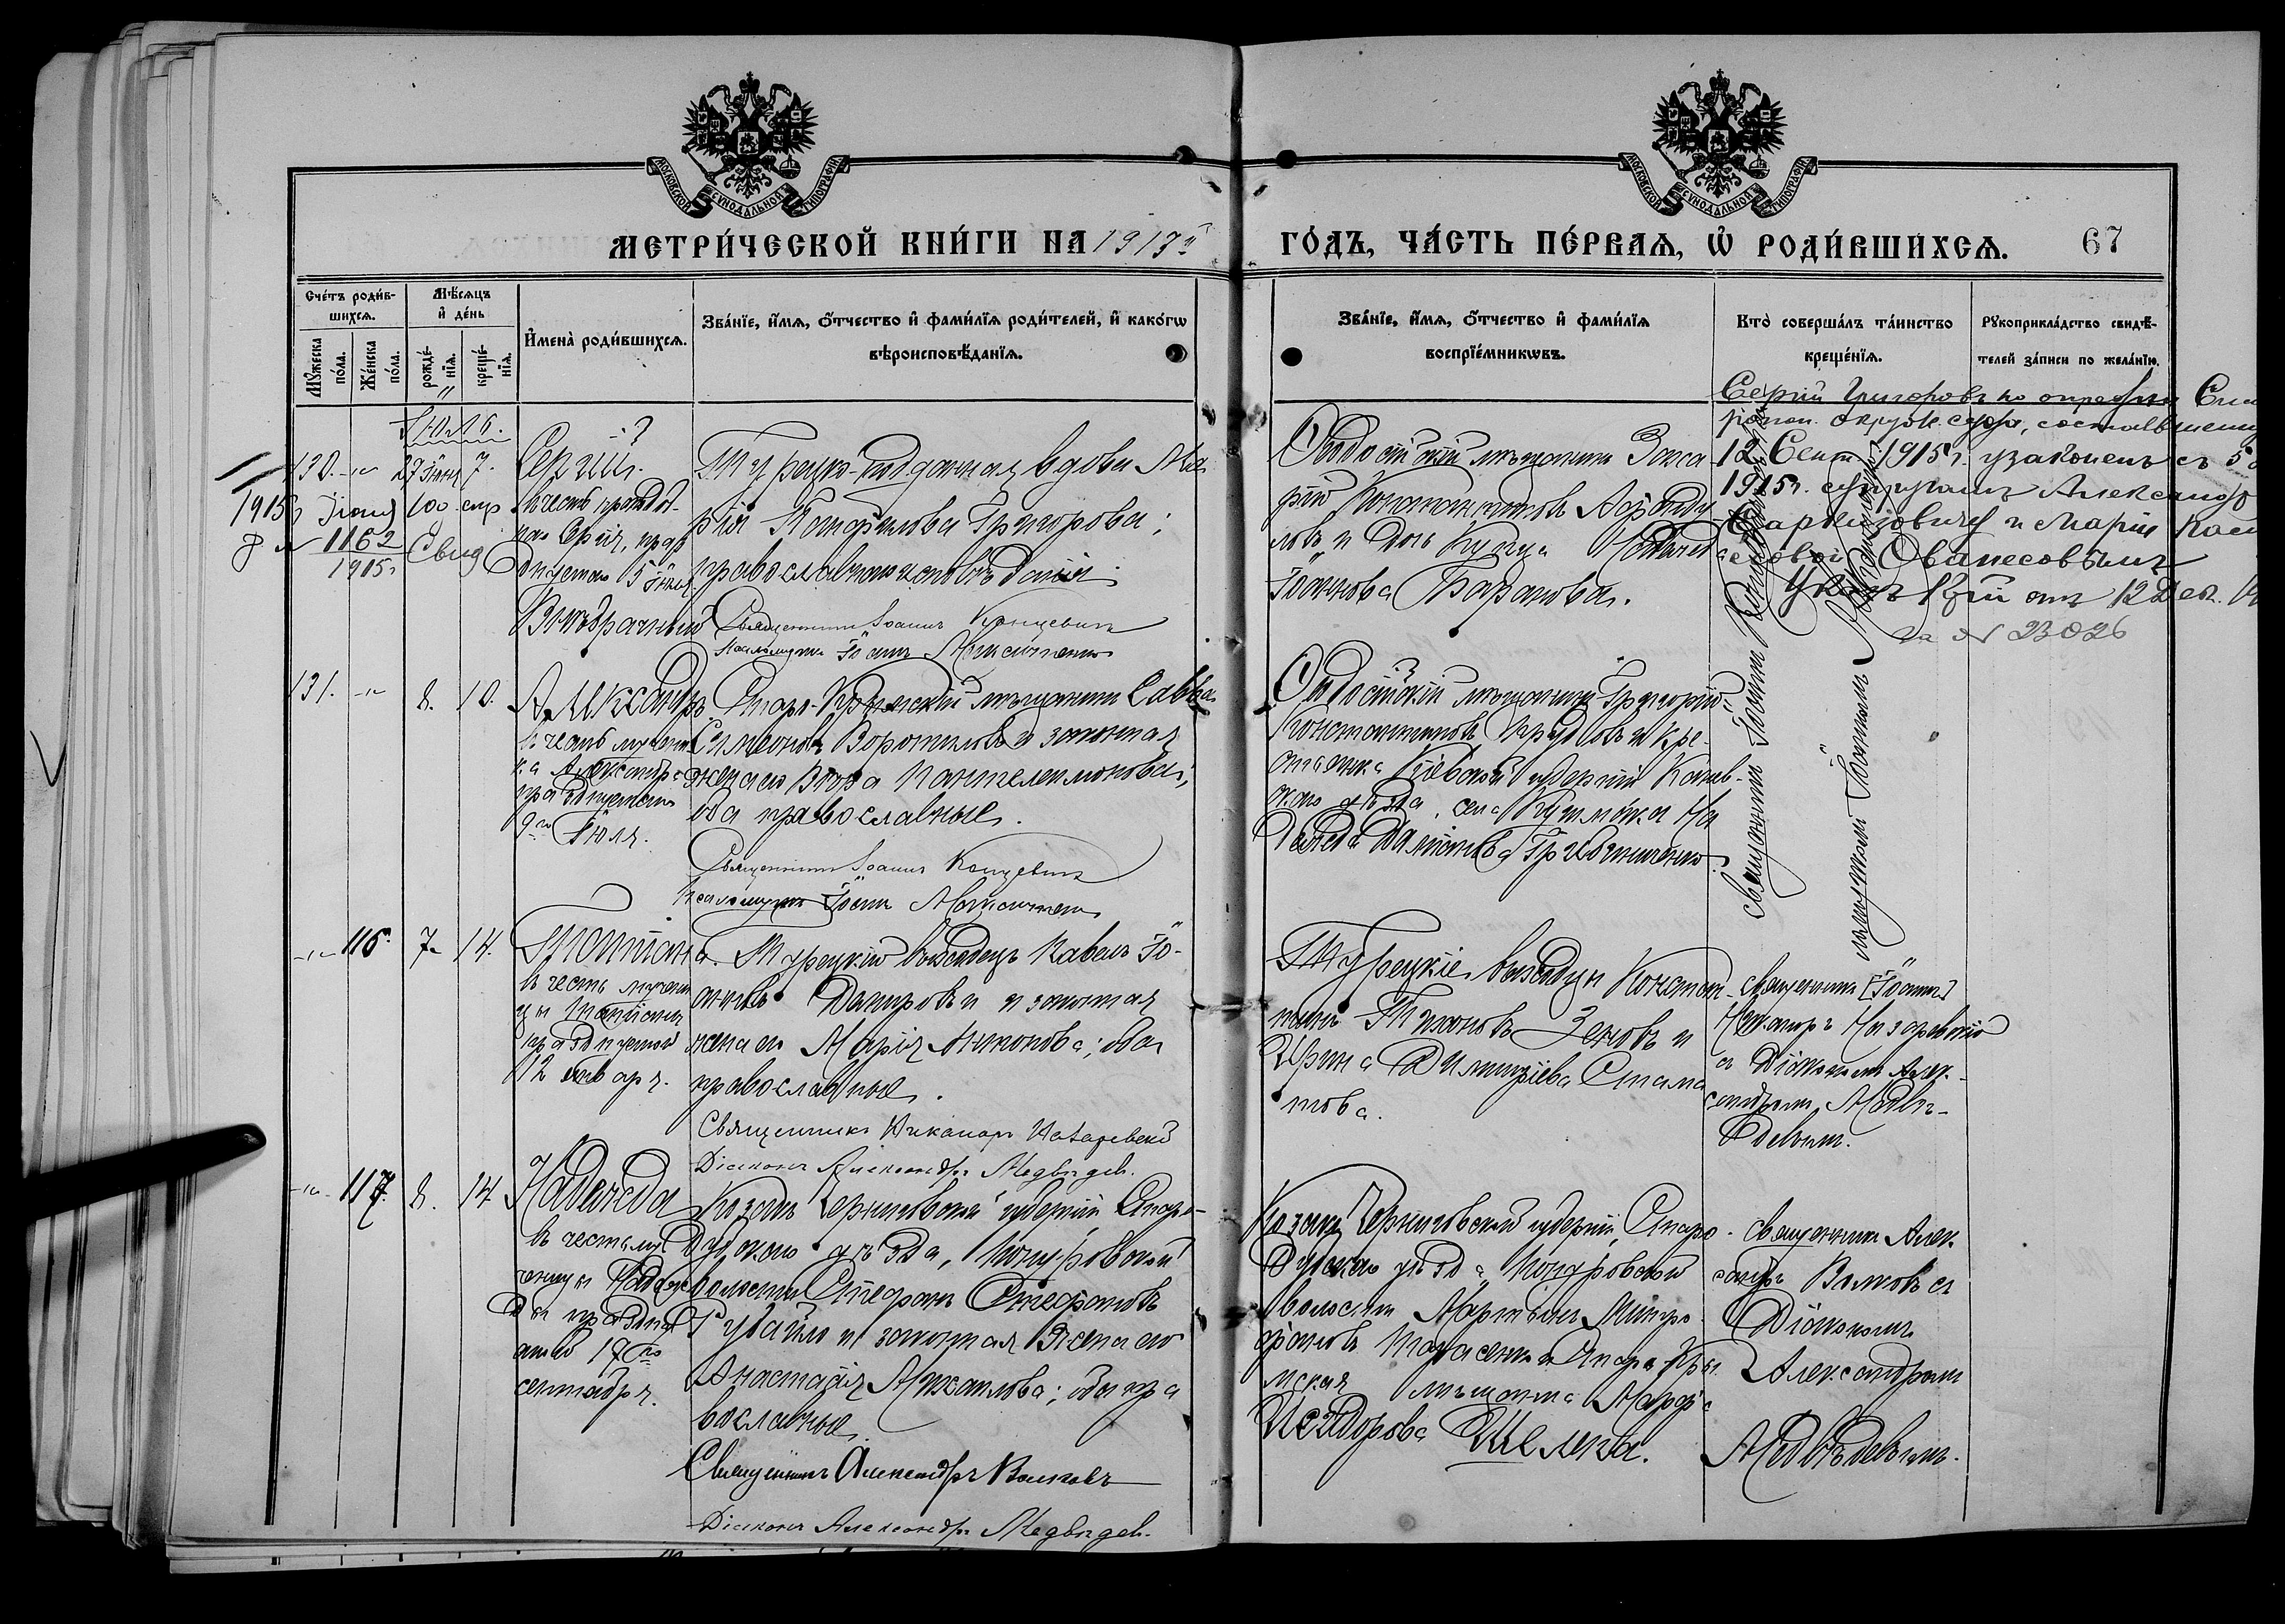 МОСКОВСКОЙ СѴНОДАЛЬНОЙ ТИПОГРАФІИ
МОСКОВСКОЙ СѴНОДАЛЬНОЙ ТИПОГРАФІИ
МЕТРИ́ЧЕСКОЙ КНИ́ГИ НА 1913й
ГО́ДЪ, ЧА́СТЬ ПЕ́РВАЯ, Ѡ РОДИ́ВШИХСЯ. 67
Сче́тъ роди́в-
шихся.
Мѣ́сяцъ
и де́нь
Му́жеска по́ла.
Же́нска по́ла.
рожде́-
нія.
креще́-
нія.
Имена̀ роди́вшихся.
Зва́ніе, и́мя, о́тчество и фами́лія роди́телей, и како́гѡ
вѣроисповѣ́данія.
Зва́ніе, и́мя, о́тчество и фами́лія
воспріе́мникѡвъ.
Кто̀ соверша́лъ та́инство
креще́нія.
Рукоприкла́дство свидѣ́-
телей за́писи по жела́нію.
Іюль.
130. -"- 27 Іюня 7.
1915 Іюня 100 свид
№ 1162
1915
Сергій.
въ честь преподоб-
наго Сергія, праз
днуемаго 5 Іюля.
Внѣбрачный
Турецко-подданная вдова Ма-
рія Григорова;
православнаго исповѣданія.
Священникъ Іоаннъ Концевичъ
Псаломщикъ Іоаннъ
Ѳеодосійскій мѣщанинъ Заха
рій Константиновъ
и дочь купца Надежда
Іоаннова Баранова.
Сергій Григоровъ по опредѣл. Сим
ропол. окруж. суда, состоявшему
12 Сент. 1915г. узаконенъ съ
1915г. супругами Александр
Саркизовичемъ и Маріей
Ованесовыми
Указъ К-ціи отъ 12 Дек. 19
за № 23026
131. -"- 8. 10.
Александръ
въ честь мучени-
ка Александра
празднуемаго
9го Іюля.
Старо-Крымскій мѣщанинъ Савва
Симеоновъ Воротиловъ и законная
жена его Вѣра Пантелеимонова;
оба православные.
Священникъ Іоаннъ Концевичъ
Псаломщикъ Іоаннъ
Ѳеодосійскій мѣщанинъ Григорій
Константиновъ и кре-
стьянка Кіевской губерніи Канев-
скаго уѣзда, села На
дежда Даміанова
Священникъ Іоаннъ Концевичъ съ
псаломщикомъ Іоанномъ
-"- 116. 7. 14.
Татіана.
въ честь мучени
цы Татіаны
празднуемой
12 января.
Турецкій выходецъ Павелъ Іо-
анновъ и законная
жена его Марія Никонова; оба
православные.
Священникъ Никаноръ Назаревскій
Діаконъ Александръ Медвѣдевъ.
Турецкіе выходцы Констан-
тинъ Тихоновъ Зеновъ и
Ирина Димитріева Стама
това.
Священникъ [Іоаннъ]
Никаноръ Назаревскій
съ Діакономъ Алек-
сандромъ Медвѣ-
девымъ.
-"- 117. 8. 14
Надежда
въ честь му
ченицы Надеж
ды праздну
емой 17го
сентября.
Козакъ Черниговской губерніи Старо-
дубскаго уѣзда,
волости Стефанъ Стефановъ
и законная жена его
Анастасія Михаилова; оба пра
вославные.
Священникъ Александръ Волковъ
Діаконъ Александръ Медвѣдевъ.
Козакъ Черниговской губерніи, Старо-
дубскаго уѣзда
волости Мартынъ Митро
фановъ Тарасенко и Старо-Кры
мская мѣщанка Марфа
Исидорова
Священникъ Алек
сандръ Волковъ съ
Діакономъ
Александромъ
Медвѣдевымъ.